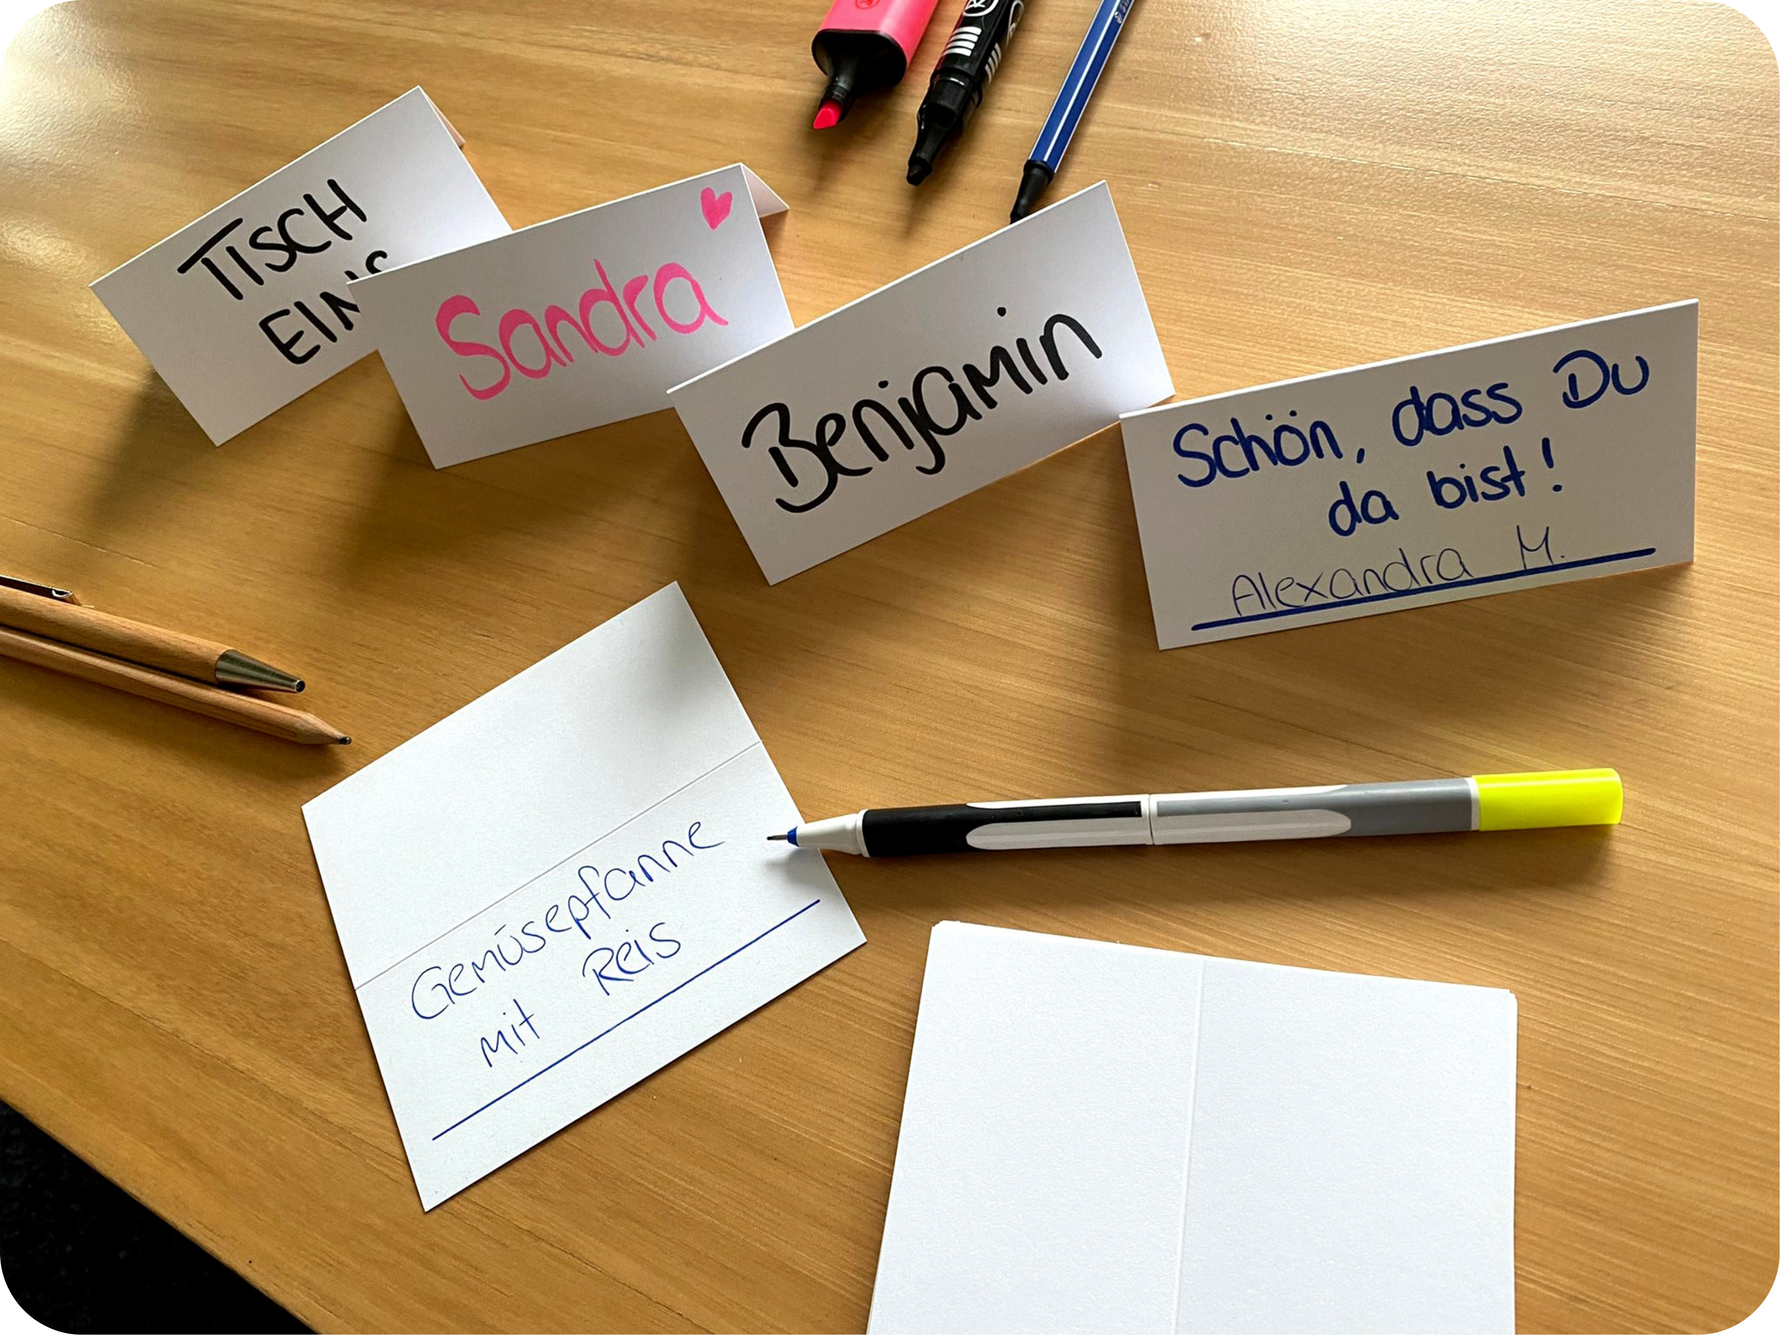 TISCH
EINS
Sandra
Benjamin
Schön, dass Du
da bist!
Alexandra M.
Gemüsepfanne
mit Reis